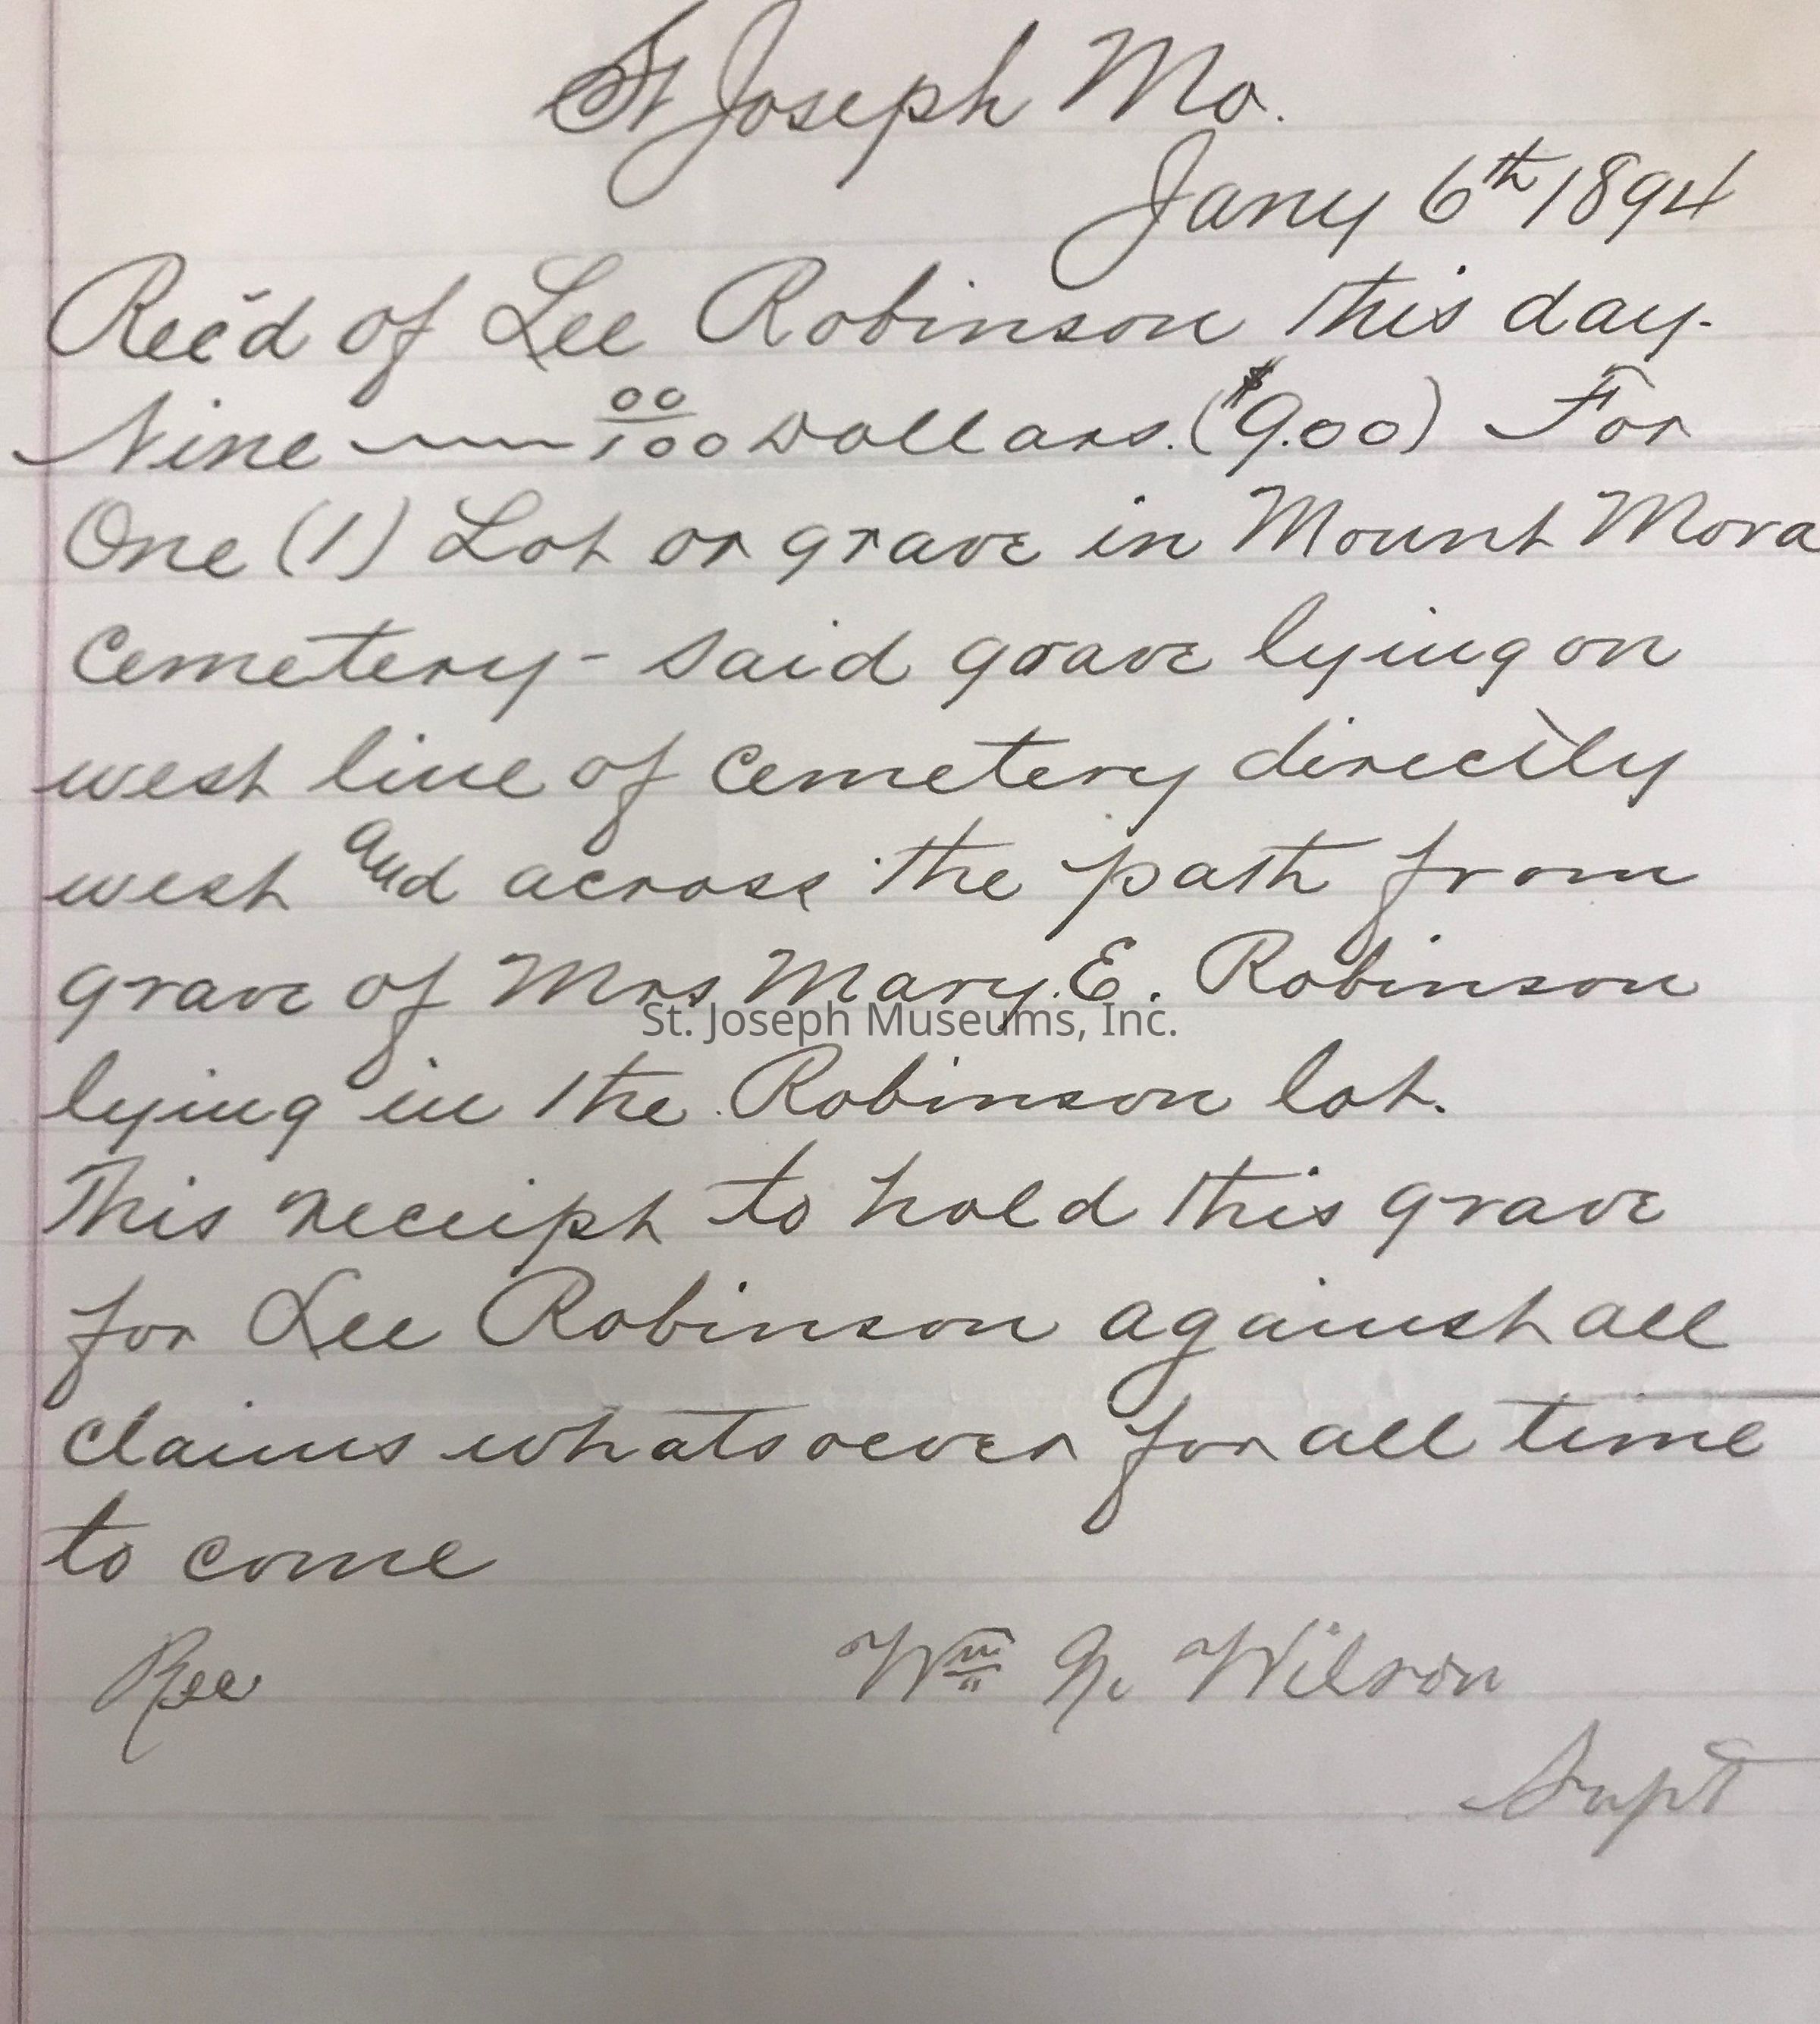 St Joseph Mo.
Jany 6th 1894
Rec'd of Lee Robinson this day.
Nine 00/100 Dollars. ($9.00) For
One (1) Lot or grave in Mount Mora
Cemetery - said grave lying on
west line of Cemetery directly
west and across the path from
grave of Mrs Mary E. Robinson
St. Joseph Museums, Inc.
lying in the Robinson lot.
This receipt to hold this grave
for Lee Robinson against all
claims whatsoever for all time
to come
Wm Wilson
Supt